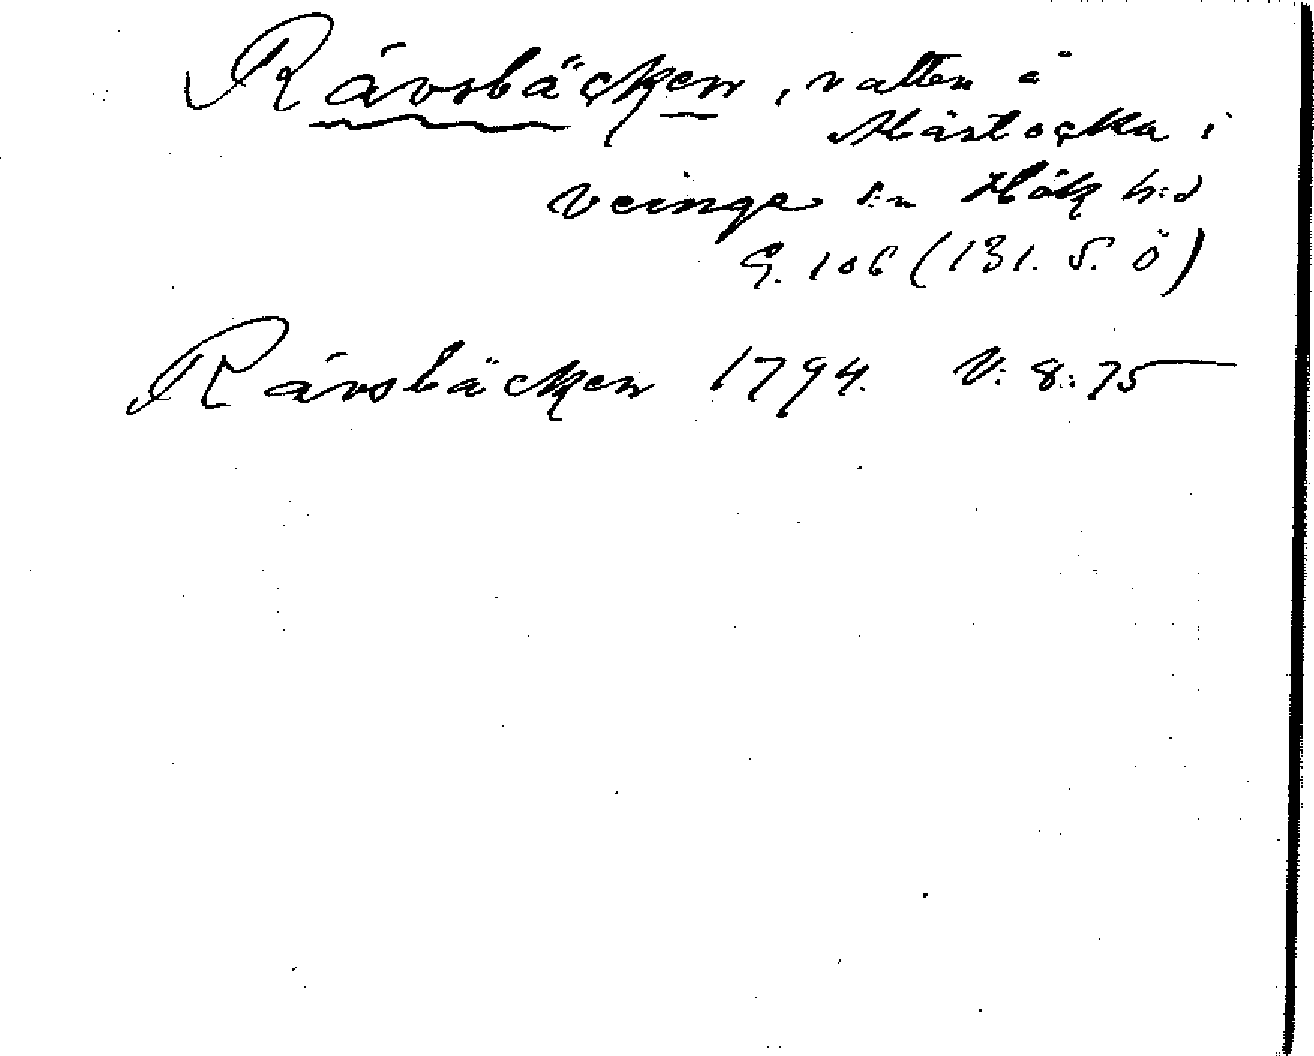 Rävsbäcken, vatten å
Mästocka i
Veinge sn Hök h:d
G. 106 (131. S. Ö)
Rävsbäcken 1794. V: 8: 75